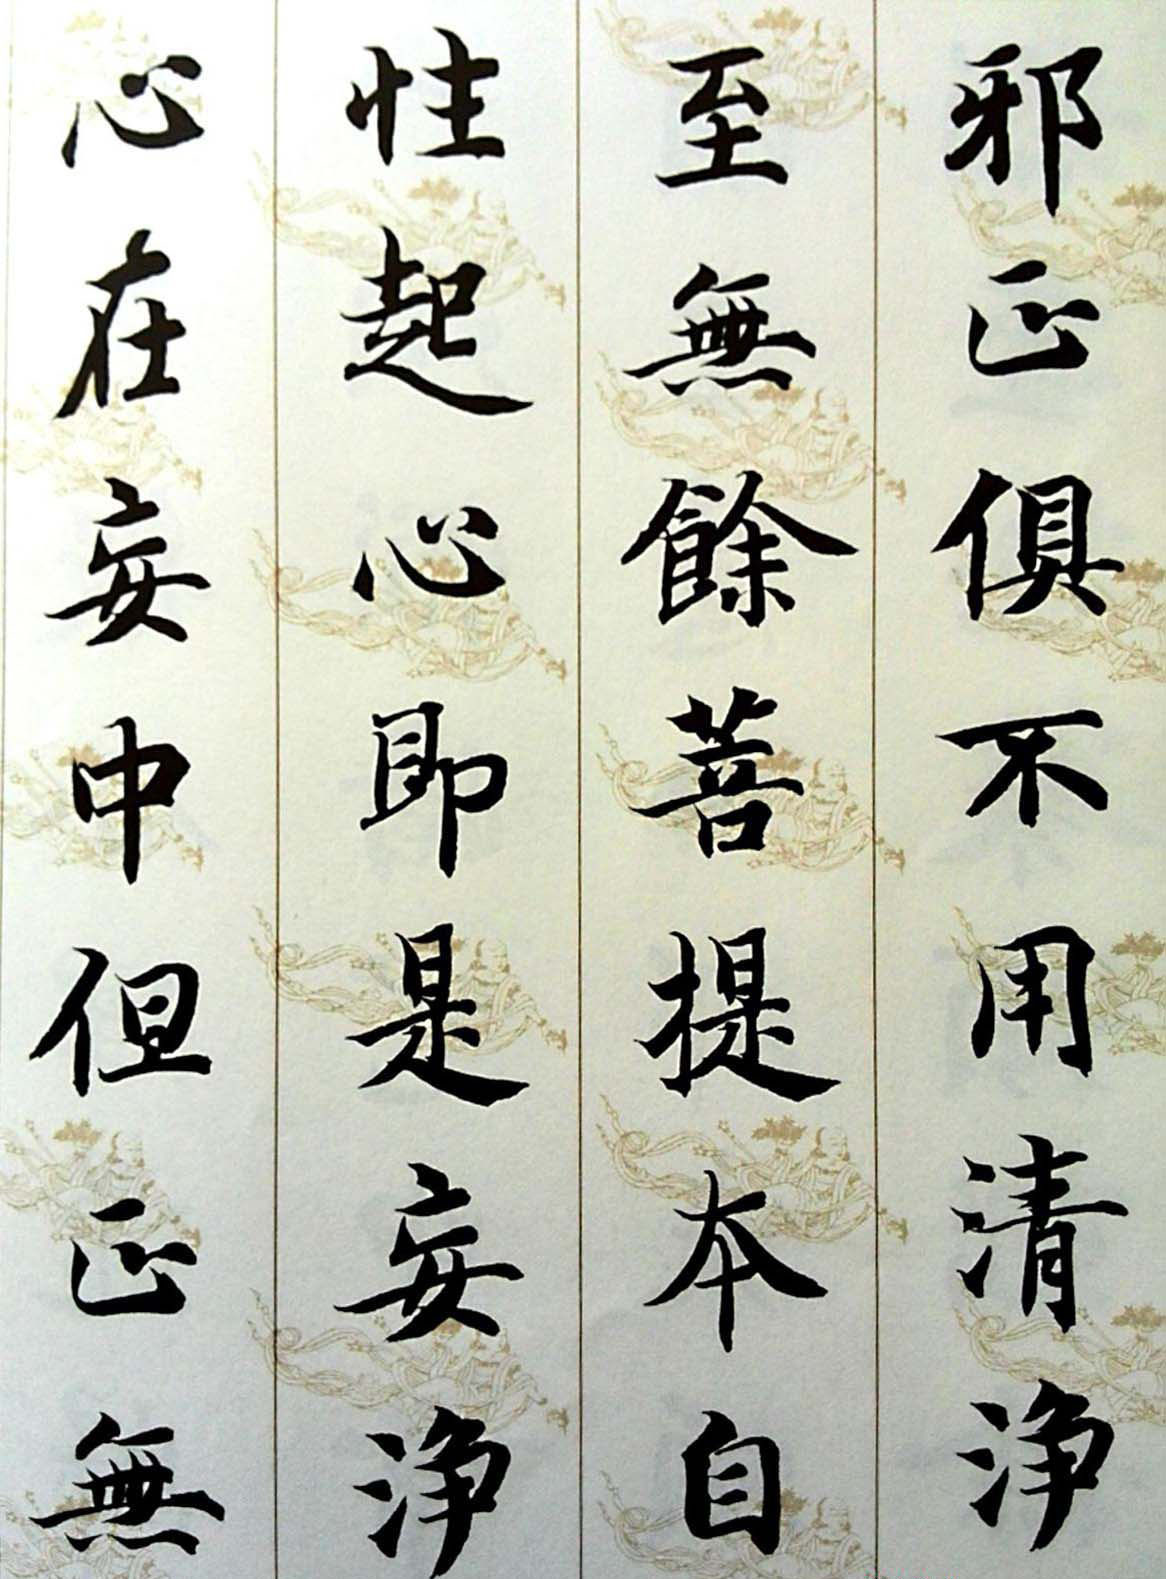 邪正俱不用清净
至無餘菩提本自
性起心即是妄净
心在妄中但正無